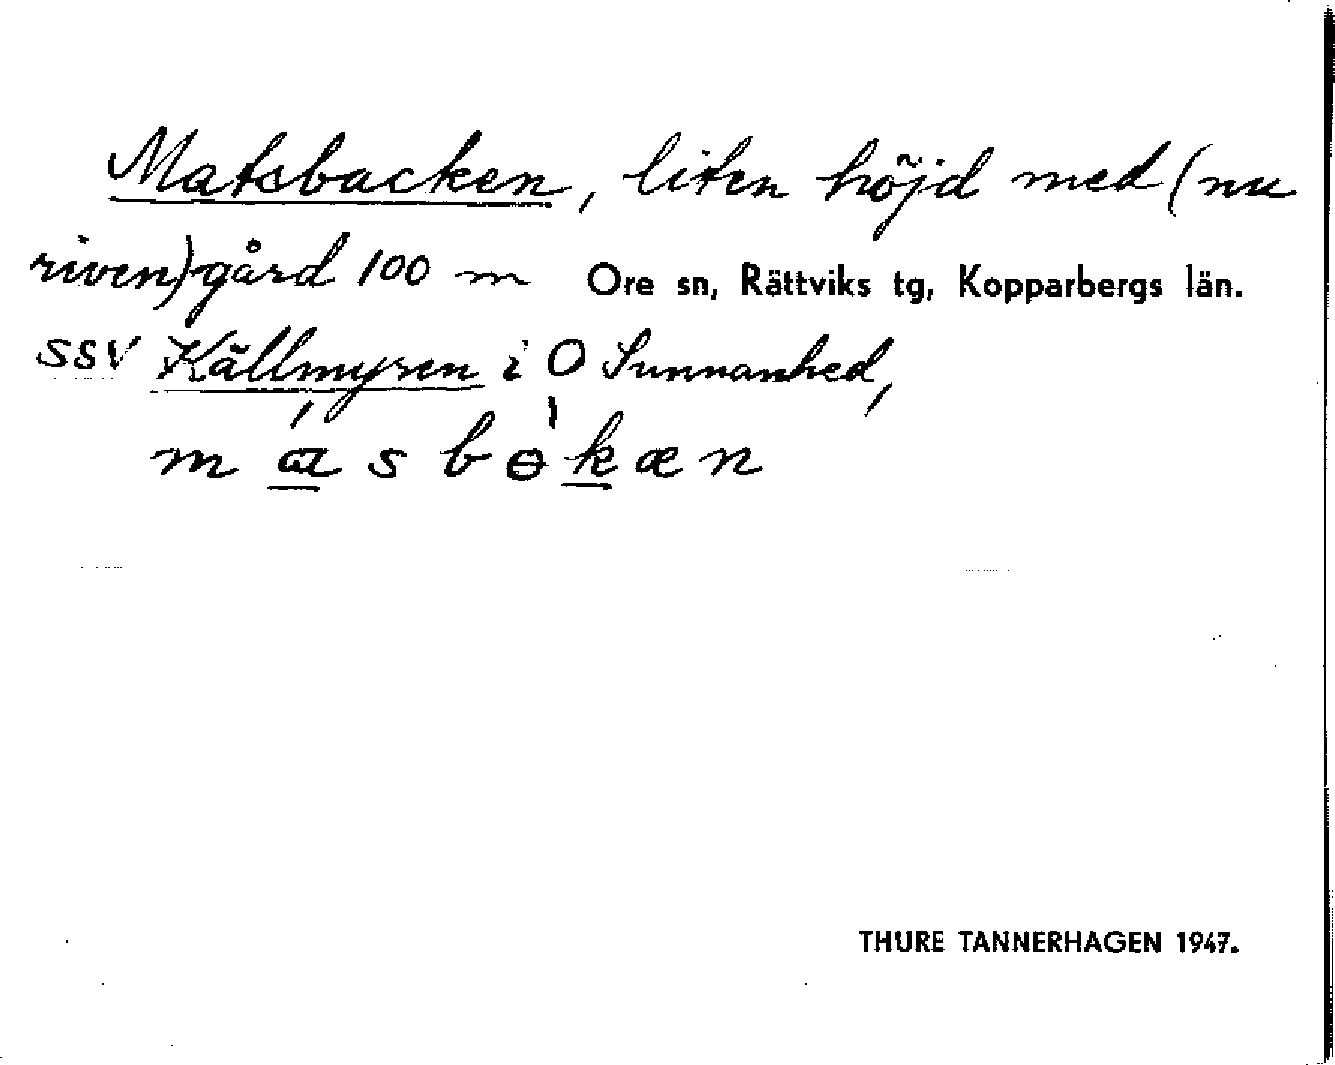 Matsbacken, liten höjd med (nu
riven) gård 100 m Ore sn, Rättviks tg, Kopparbergs län.
SSV Källmyren i O Sunnanhed,
m ɑ́ s b ɵ̀ k æ n
THURE TANNERHAGEN 1947.